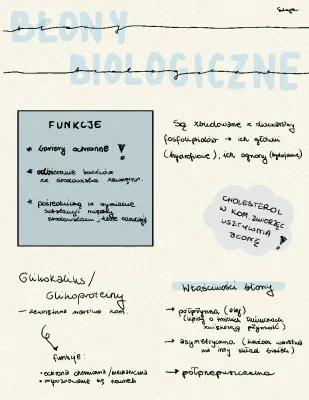 BŁONY
BIOLOGICZNE
biologiczne
FUNKCJE
* bariery ochronne !
* odbieranie bodźców
ze środowiska zewnętrzn.
* pośredniczą w wymianie
substancji między
środowiskami, które rozdzielają
Są zbudowane z dwuwarstwy
fosfolipidów → ich głowy
(hydrofilowe), ich ogony (hydrofobowe)
CHOLESTEROL
W KOM. ZWIERZĘC.
USZTYWNIA
BŁONĘ !
Glikokaliks/
Glikoproteiny
- zewnętrzna warstwa kom.
funkcje:
• ochrona chemiczna/mechaniczna
• rozpoznawanie się komórek
Właściwości błony
→ półpłynna (olej)
→ asymetryczna (każda warstwa
ma inny skład białek)
→ półprzepuszczalna